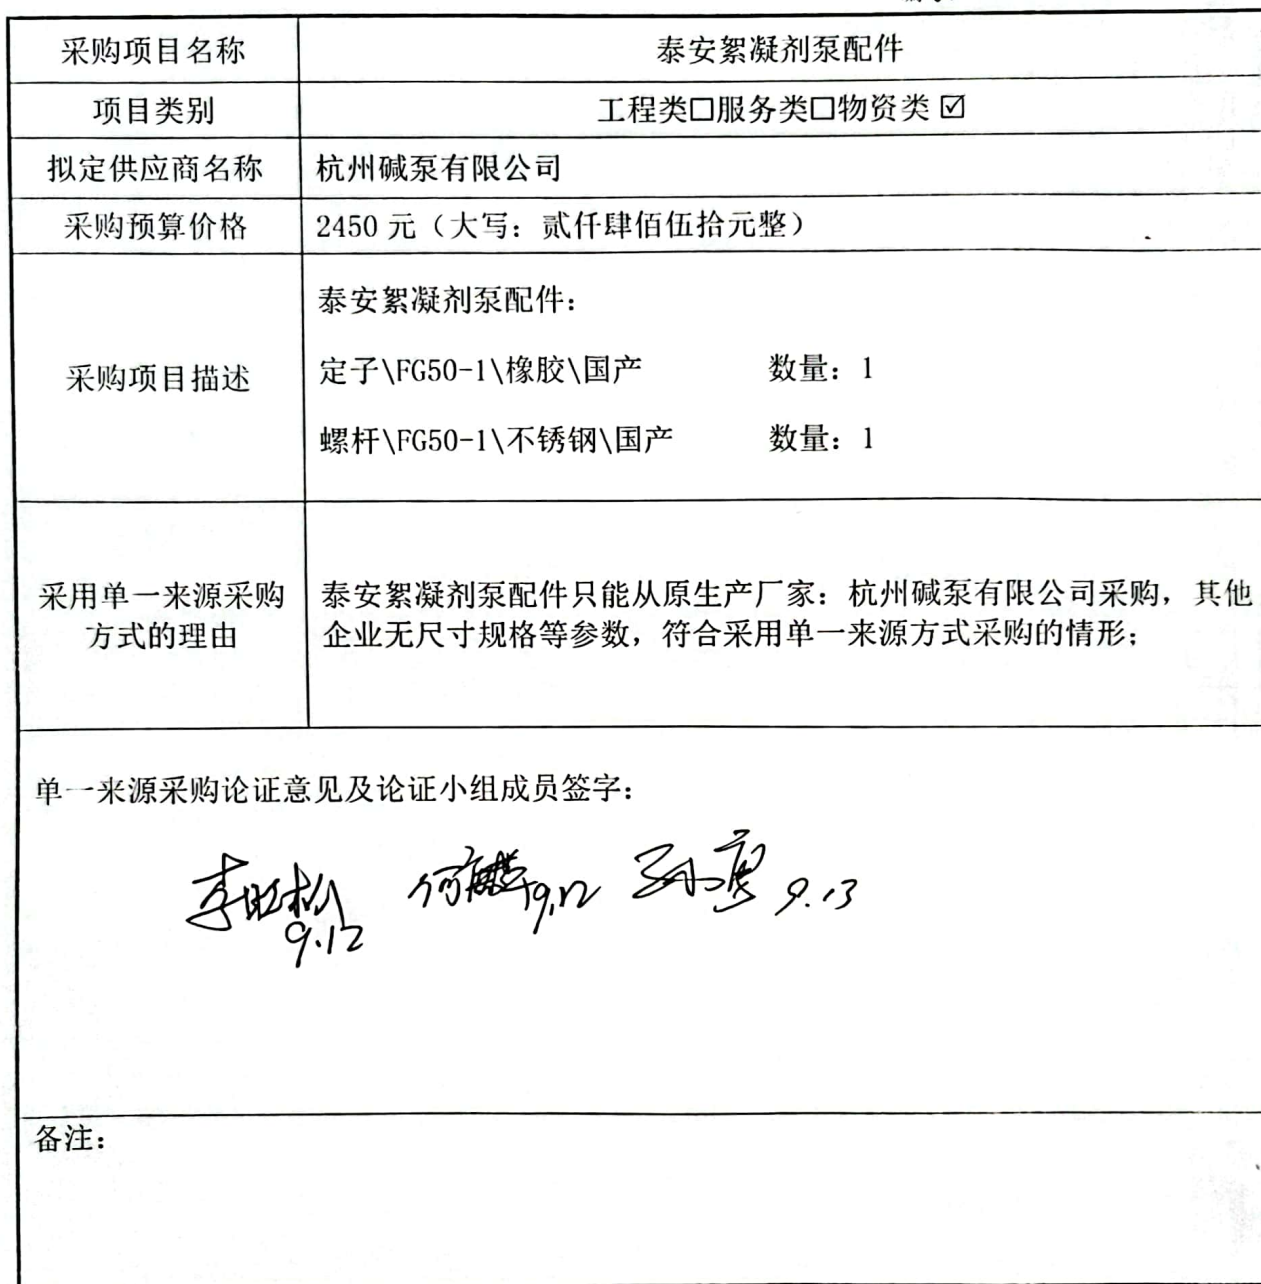 采购项目名称
泰安絮凝剂泵配件
项目类别
工程类□服务类□物资类☑
拟定供应商名称
杭州碱泵有限公司
采购预算价格
2450元（大写：贰仟肆佰伍拾元整）
采购项目描述
泰安絮凝剂泵配件：
定子\FG50-1\橡胶\国产 数量：1
螺杆\FG50-1\不锈钢\国产 数量：1
采用单一来源采购
方式的理由
泰安絮凝剂泵配件只能从原生产厂家：杭州碱泵有限公司采购，其他
企业无尺寸规格等参数，符合采用单一来源方式采购的情形；
单一来源采购论证意见及论证小组成员签字：
9.12 9.12 9.13
备注：